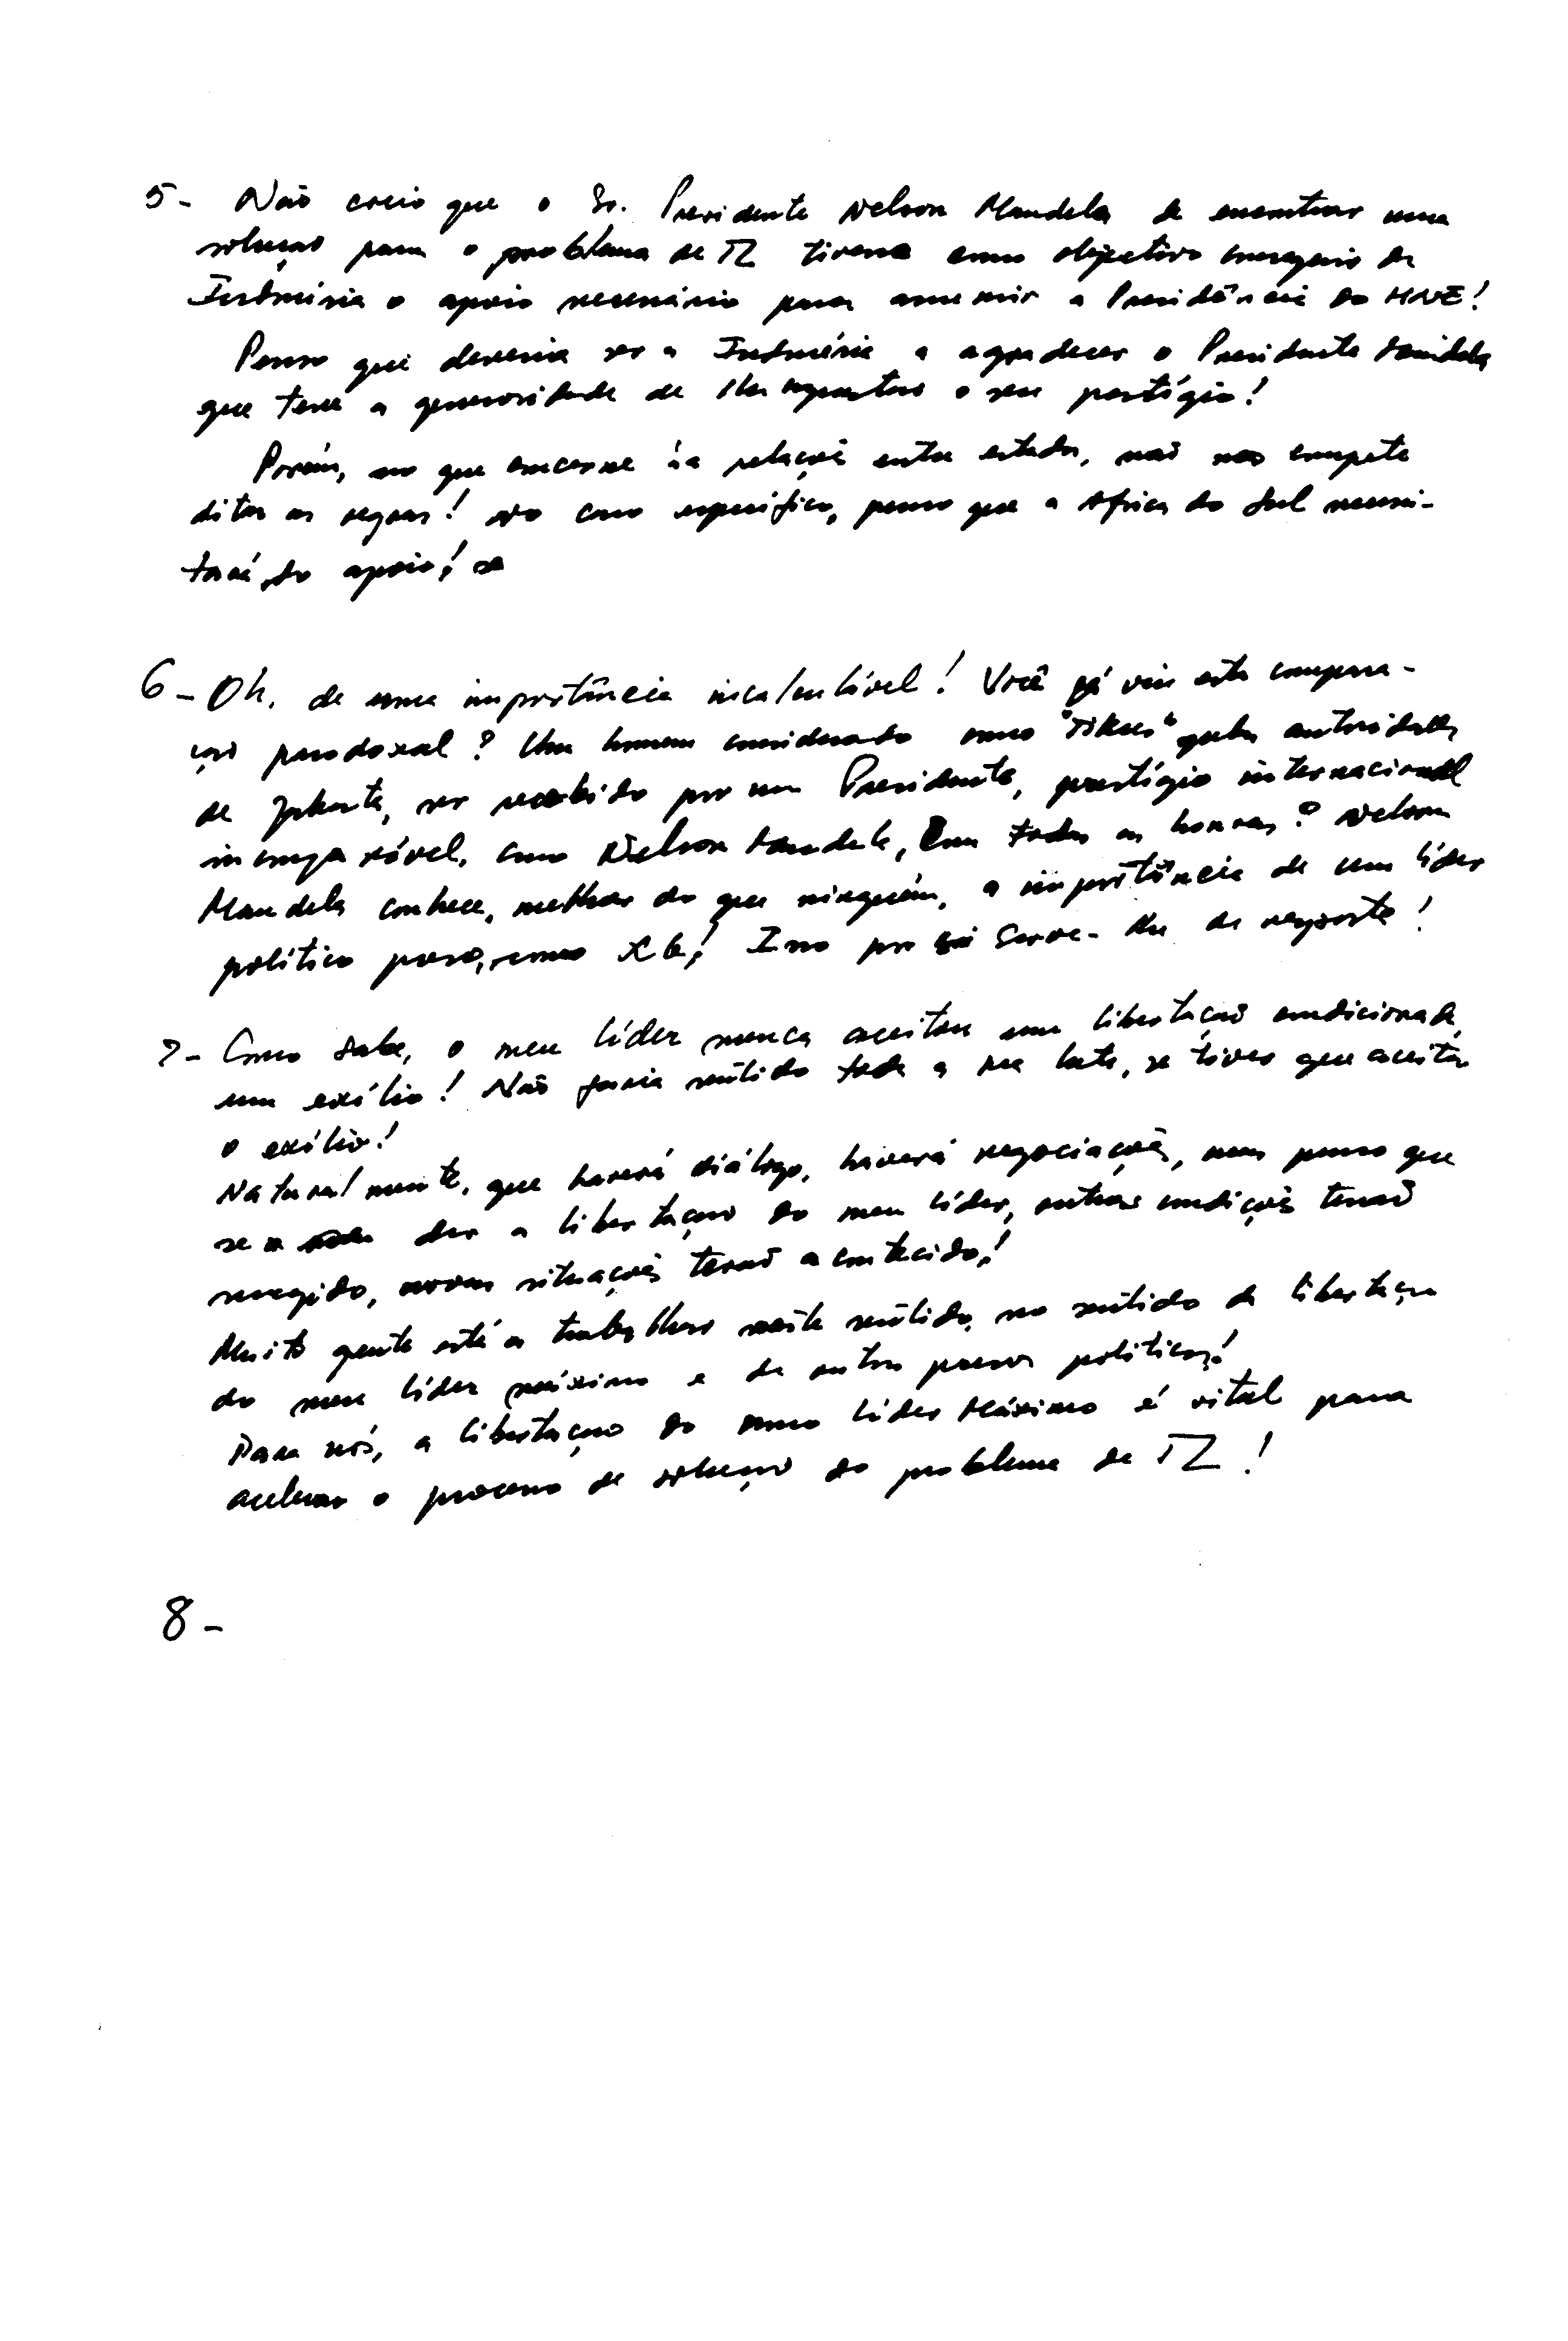 5- Não creio que o Sr. Presidente Nelson Mandela de encontrar uma
solução para o problema de TL tivesse como objectivo angariar da
Indonésia o apoio necessário para assumir a Presidência do MNE!
Penso que deveria ser a Indonésia a agradecer o Presidente Mandela
que teve a generosidade de lhe emprestar o seu prestígio!
Porém, no que concerne às relações entre estados, não nos compete
ditar as regras! No caso específico, penso que a Africa do Sul necessi-
tará do apoio!
6- Oh, de uma importância incalculável! Você já viu esta compara-
ção paradoxal? Um homem considerado como "Tikus" pelas autoridades
de Jakarta, ser recebido por um Presidente, prestígio internacional
incomparável, como Nelson Mandela, com todas as honras? Nelson
Mandela conhece, melhor do que ninguém, a importância de um líder
político preso, como XG! Isso por si serve-lhe de resposta!
7- Como sabe, o meu líder nunca aceitou uma libertação condicionada,
um exílio! Não faria sentido toda a sua luta, se tiver que aceitar
o exílio!
Naturalmente, que haverá diálogo, haverá negociações, mas penso que
se der a libertação do meu líder, outras condições terão
surgido, novas situações terão acontecido!
Muita gente está a trabalhar neste sentido, no sentido da libertação
do meu líder máximo e de outros presos políticos!
Para nós, a libertação do nosso líder Máximo é vital para
acelerar o processo de solução do problema de TL!
8-